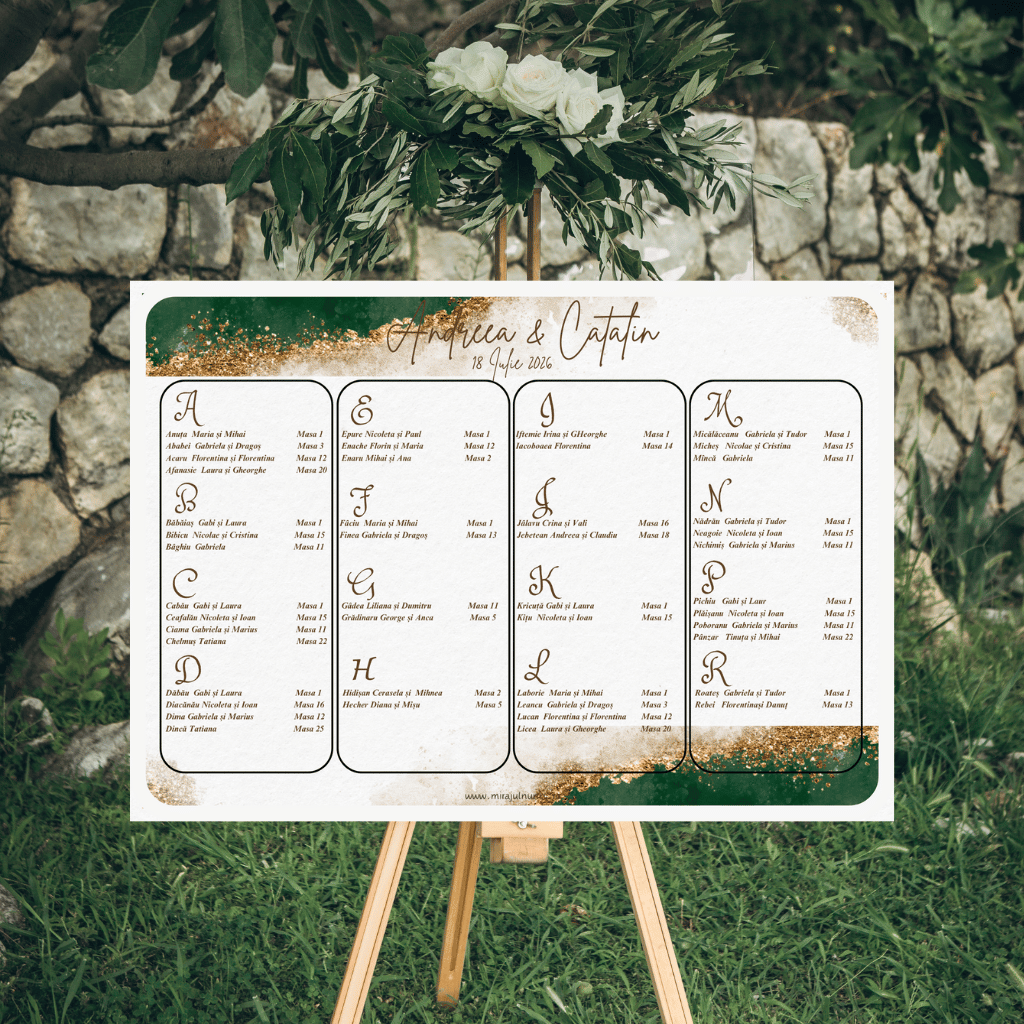 Andreea & Catalin
18 Iulie 2026
A
Anuța Maria si Mihai Masa 1
Ababei Gabriela și Dragoș Masa 3
Acaru Florentina și Florentina Masa 12
Afanasie Laura și Gheorghe Masa 20
B
Băbăiaș Gabi și Laura Masa 1
Bibicu Nicolae și Cristina Masa 15
Băghiu Gabriela Masa 11
C
Cabău Gabi și Laura Masa 1
Ceafalău Nicoleta și Ioan Masa 15
Ciama Gabriela și Marius Masa 11
Chelmuș Tatiana Masa 22
D
Dăbău Gabi și Laura Masa 1
Diacănău Nicoleta și Ioan Masa 16
Dima Gabriela și Marius Masa 12
Dincă Tatiana Masa 25
E
Epure Nicoleta și Paul Masa 1
Enache Florin și Maria Masa 12
Enaru Mihai și Ana Masa 2
F
Fâciu Maria și Mihai Masa 1
Finea Gabriela și Dragoș Masa 13
G
Gâdea Liliana și Dumitru Masa 11
Grădinaru George și Anca Masa 5
H
Hidișan Cerasela și Mihnea Masa 2
Hecher Diana și Mișu Masa 5
I
Iftemie Irina și GHeorghe Masa 1
Iacoboaea Florentina Masa 14
J
Jălavu Crina și Vali Masa 16
Jebetean Andreea și Claudiu Masa 18
K
Kricuță Gabi și Laura Masa 1
Kițu Nicoleta și Ioan Masa 15
L
Laborie Maria și Mihai Masa 1
Leancu Gabriela și Dragoș Masa 3
Lucan Florentina și Florentina Masa 12
Licea Laura și Gheorghe Masa 20
M
Micălăceanu Gabriela și Tudor Masa 1
Micheș Nicolae și Cristina Masa 15
Mincă Gabriela Masa 11
N
Nădrău Gabriela și Tudor Masa 1
Neagoie Nicoleta și Ioan Masa 15
Nichimiș Gabriela și Marius Masa 11
P
Pichiu Gabi și Laur Masa 1
Plăișanu Nicoleta și Ioan Masa 15
Poboranu Gabriela și Marius Masa 11
Pânzar Tinuța și Mihai Masa 22
R
Roateș Gabriela și Tudor Masa 1
Rebei Florentinași Danuț Masa 13